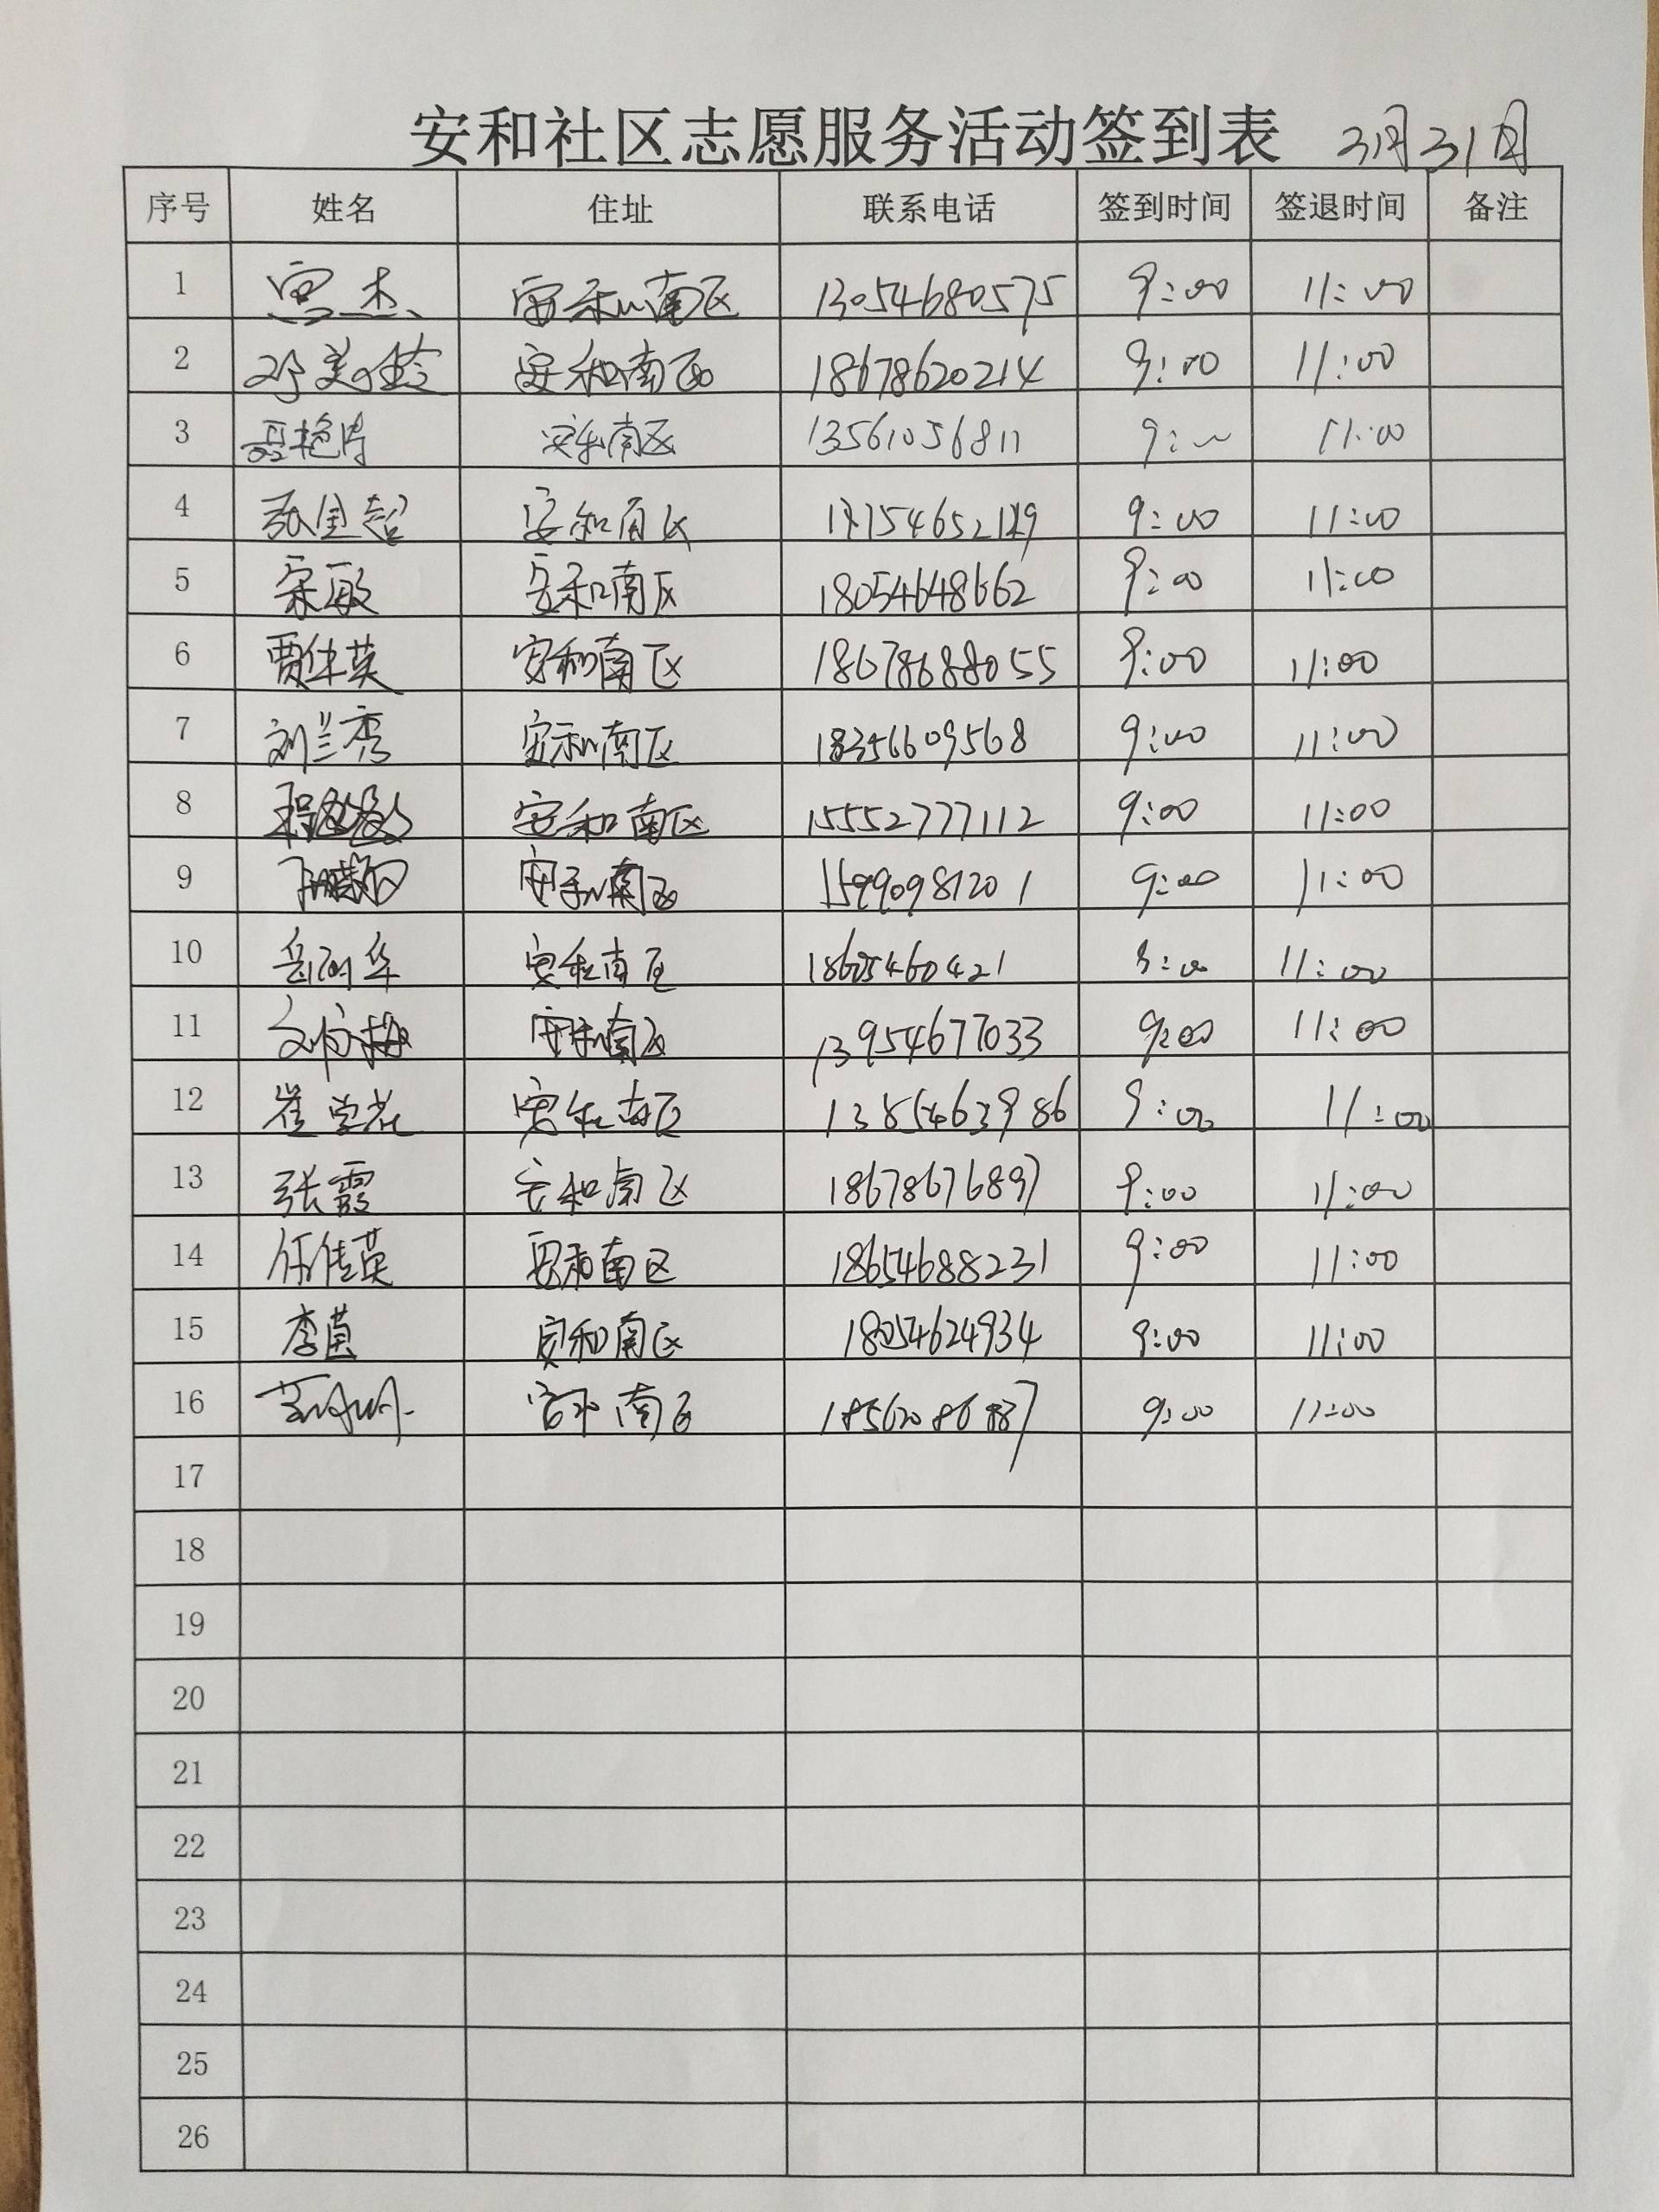 安和社区志愿服务活动签到表 3月31日
序号 姓名 住址 联系电话 签到时间 签退时间 备注
1 宫杰 安和南区 13054680575 9:00 11:00
2 邓美玲 安和南区 18678620214 9:00 11:00
3 聂艳 安和南区 13561056811 9:00 11:00
4 张国超 安和南区 9:00 11:00
5 宋敏 安和南区 18054648662 9:00 11:00
6 贾佳英 安和南区 18678688055 9:00 11:00
7 刘兰秀 安和南区 18356609568 9:00 11:00
8 程 安和南区 15552777112 9:00 11:00
9 安和南区 15990981201 9:00 11:00
10 岳丽华 安和南区 18605460421 9:00 11:00
11 安和南区 13954677033 9:00 11:00
12 崔学花 安和南区 1385463986 9:00 11:00
13 张霞 安和南区 18678676897 9:00 11:00
14 任佳英 安和南区 18654688231 9:00 11:00
15 李茵 安和南区 18054624934 9:00 11:00
16 安和南区 9:00 11:00
17
18
19
20
21
22
23
24
25
26